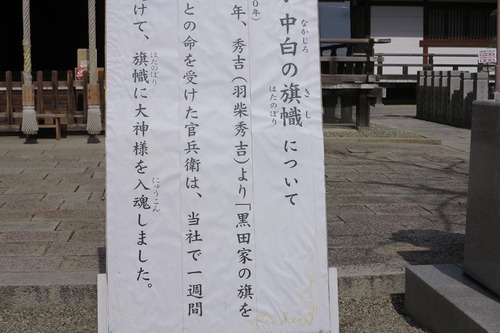 中白の旗幟について
なかじろ
きし
はたのぼり
年、秀吉(羽柴秀吉)より「黒田家の旗を
0年)
との命を受けた官兵衛は、当社で一週間
けて、旗幟に大神様を入魂しました。
はたのぼり
にゅうこん